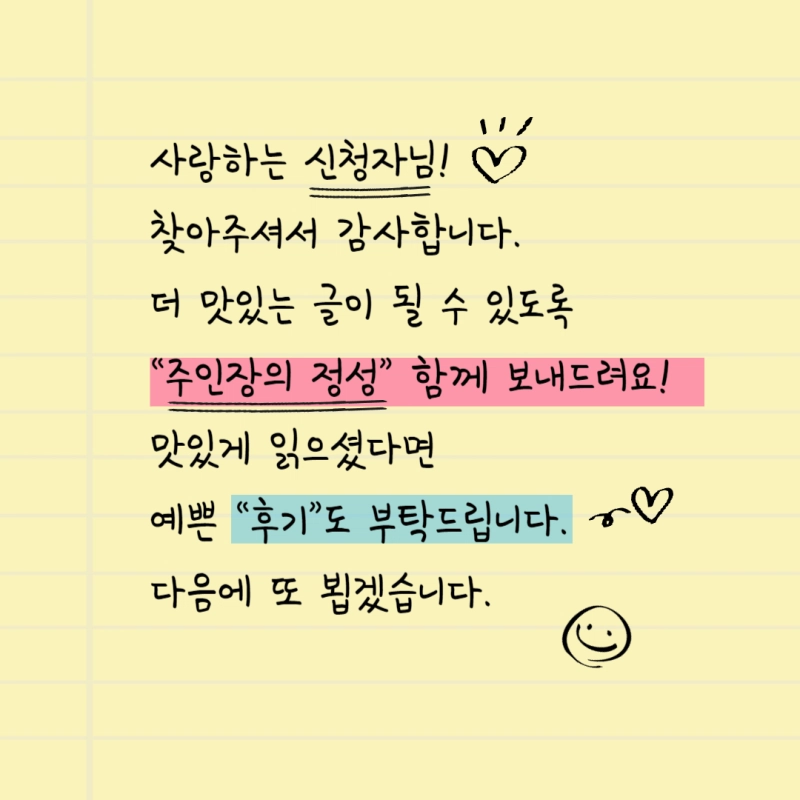 사랑하는 신청자님!
찾아주셔서 감사합니다.
더 맛있는 글이 될 수 있도록
“주인장의 정성” 함께 보내드려요!
맛있게 읽으셨다면
예쁜 “후기”도 부탁드립니다.
다음에 또 뵙겠습니다.